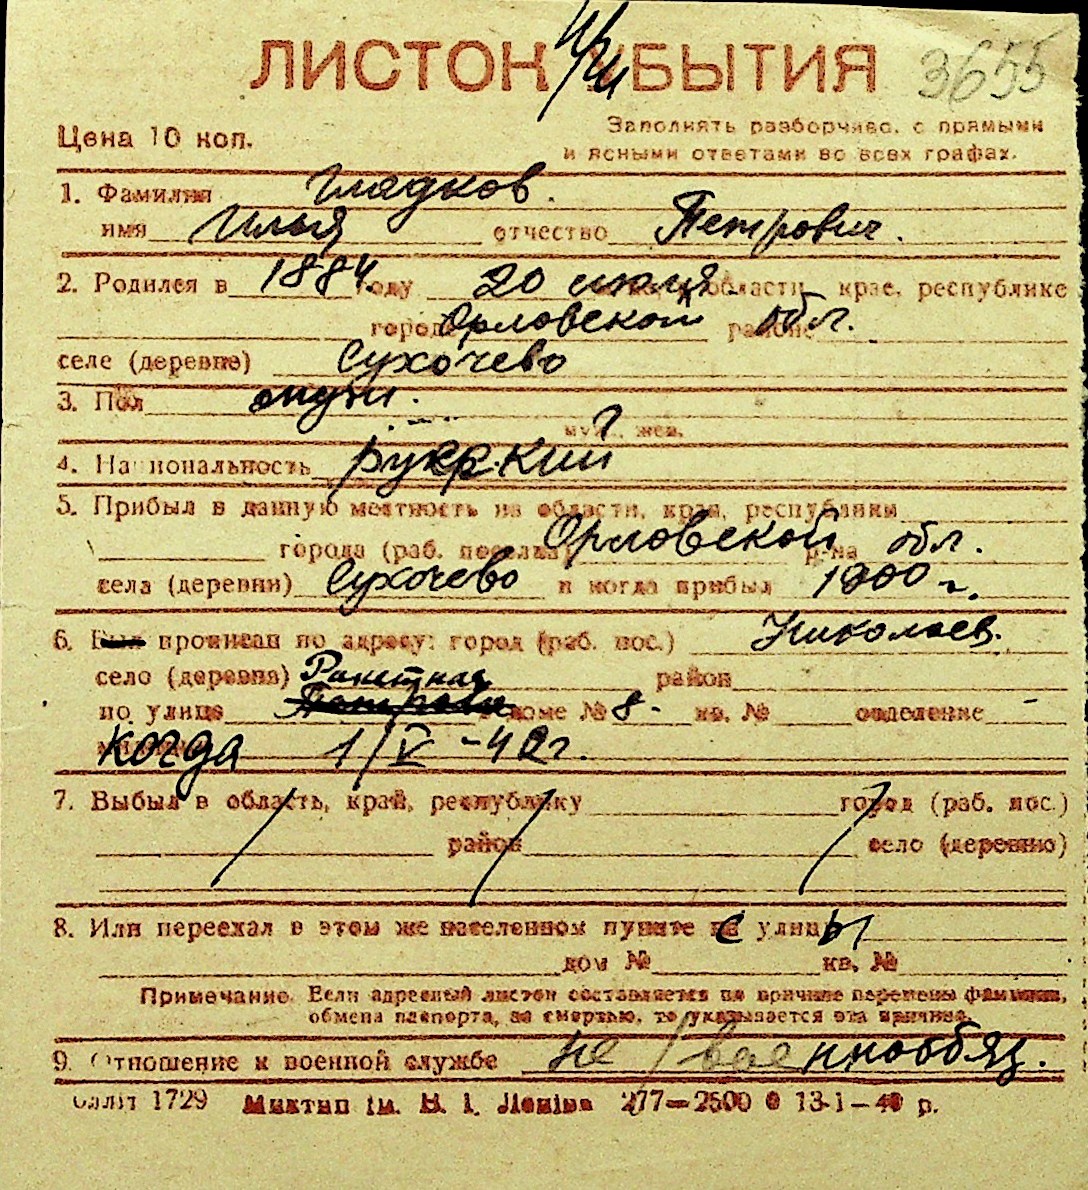 ЛИСТОК УБЫТИЯ 3655
Цена 10 коп.
Заполнять разборчиво, с прямыми
и ясными ответами во всех графах.
1. Фамилия Гладков.
имя Илья отчество Петрович.
2. Родился в 1884 году 20 июля области, крае, республике
города Орловской обл. районе
селе (деревне) Сухочево
3. Пол муж.
муж., жен.
4. Национальность русский
5. Прибыл в данную местность из области, края, республики
города (раб. поселка) Орловской р-на обл.
села (деревни) Сухочево и когда прибыл 1900 г.
6. Был проживал по адресу: город (раб. пос.) Николаев.
село (деревня) Ракетная район
по улице доме № 8 - кв. № отделение -
когда 1/V - 42 г.
7. Выбыл в область, край, республику город (раб. пос.)
район село (деревню)
8. Или переехал в этом же населенном пункте с улицы
дом № кв. №
Примечание. Если адресный листок составляется по причине перемены фамилии,
обмена паспорта, за смертью, то указывается эта причина.
9. Отношение к военной службе не военнообяз.
Оділіт 1729 Миктип ім. В. І. Леніна 277—2500 13-1—4 р.